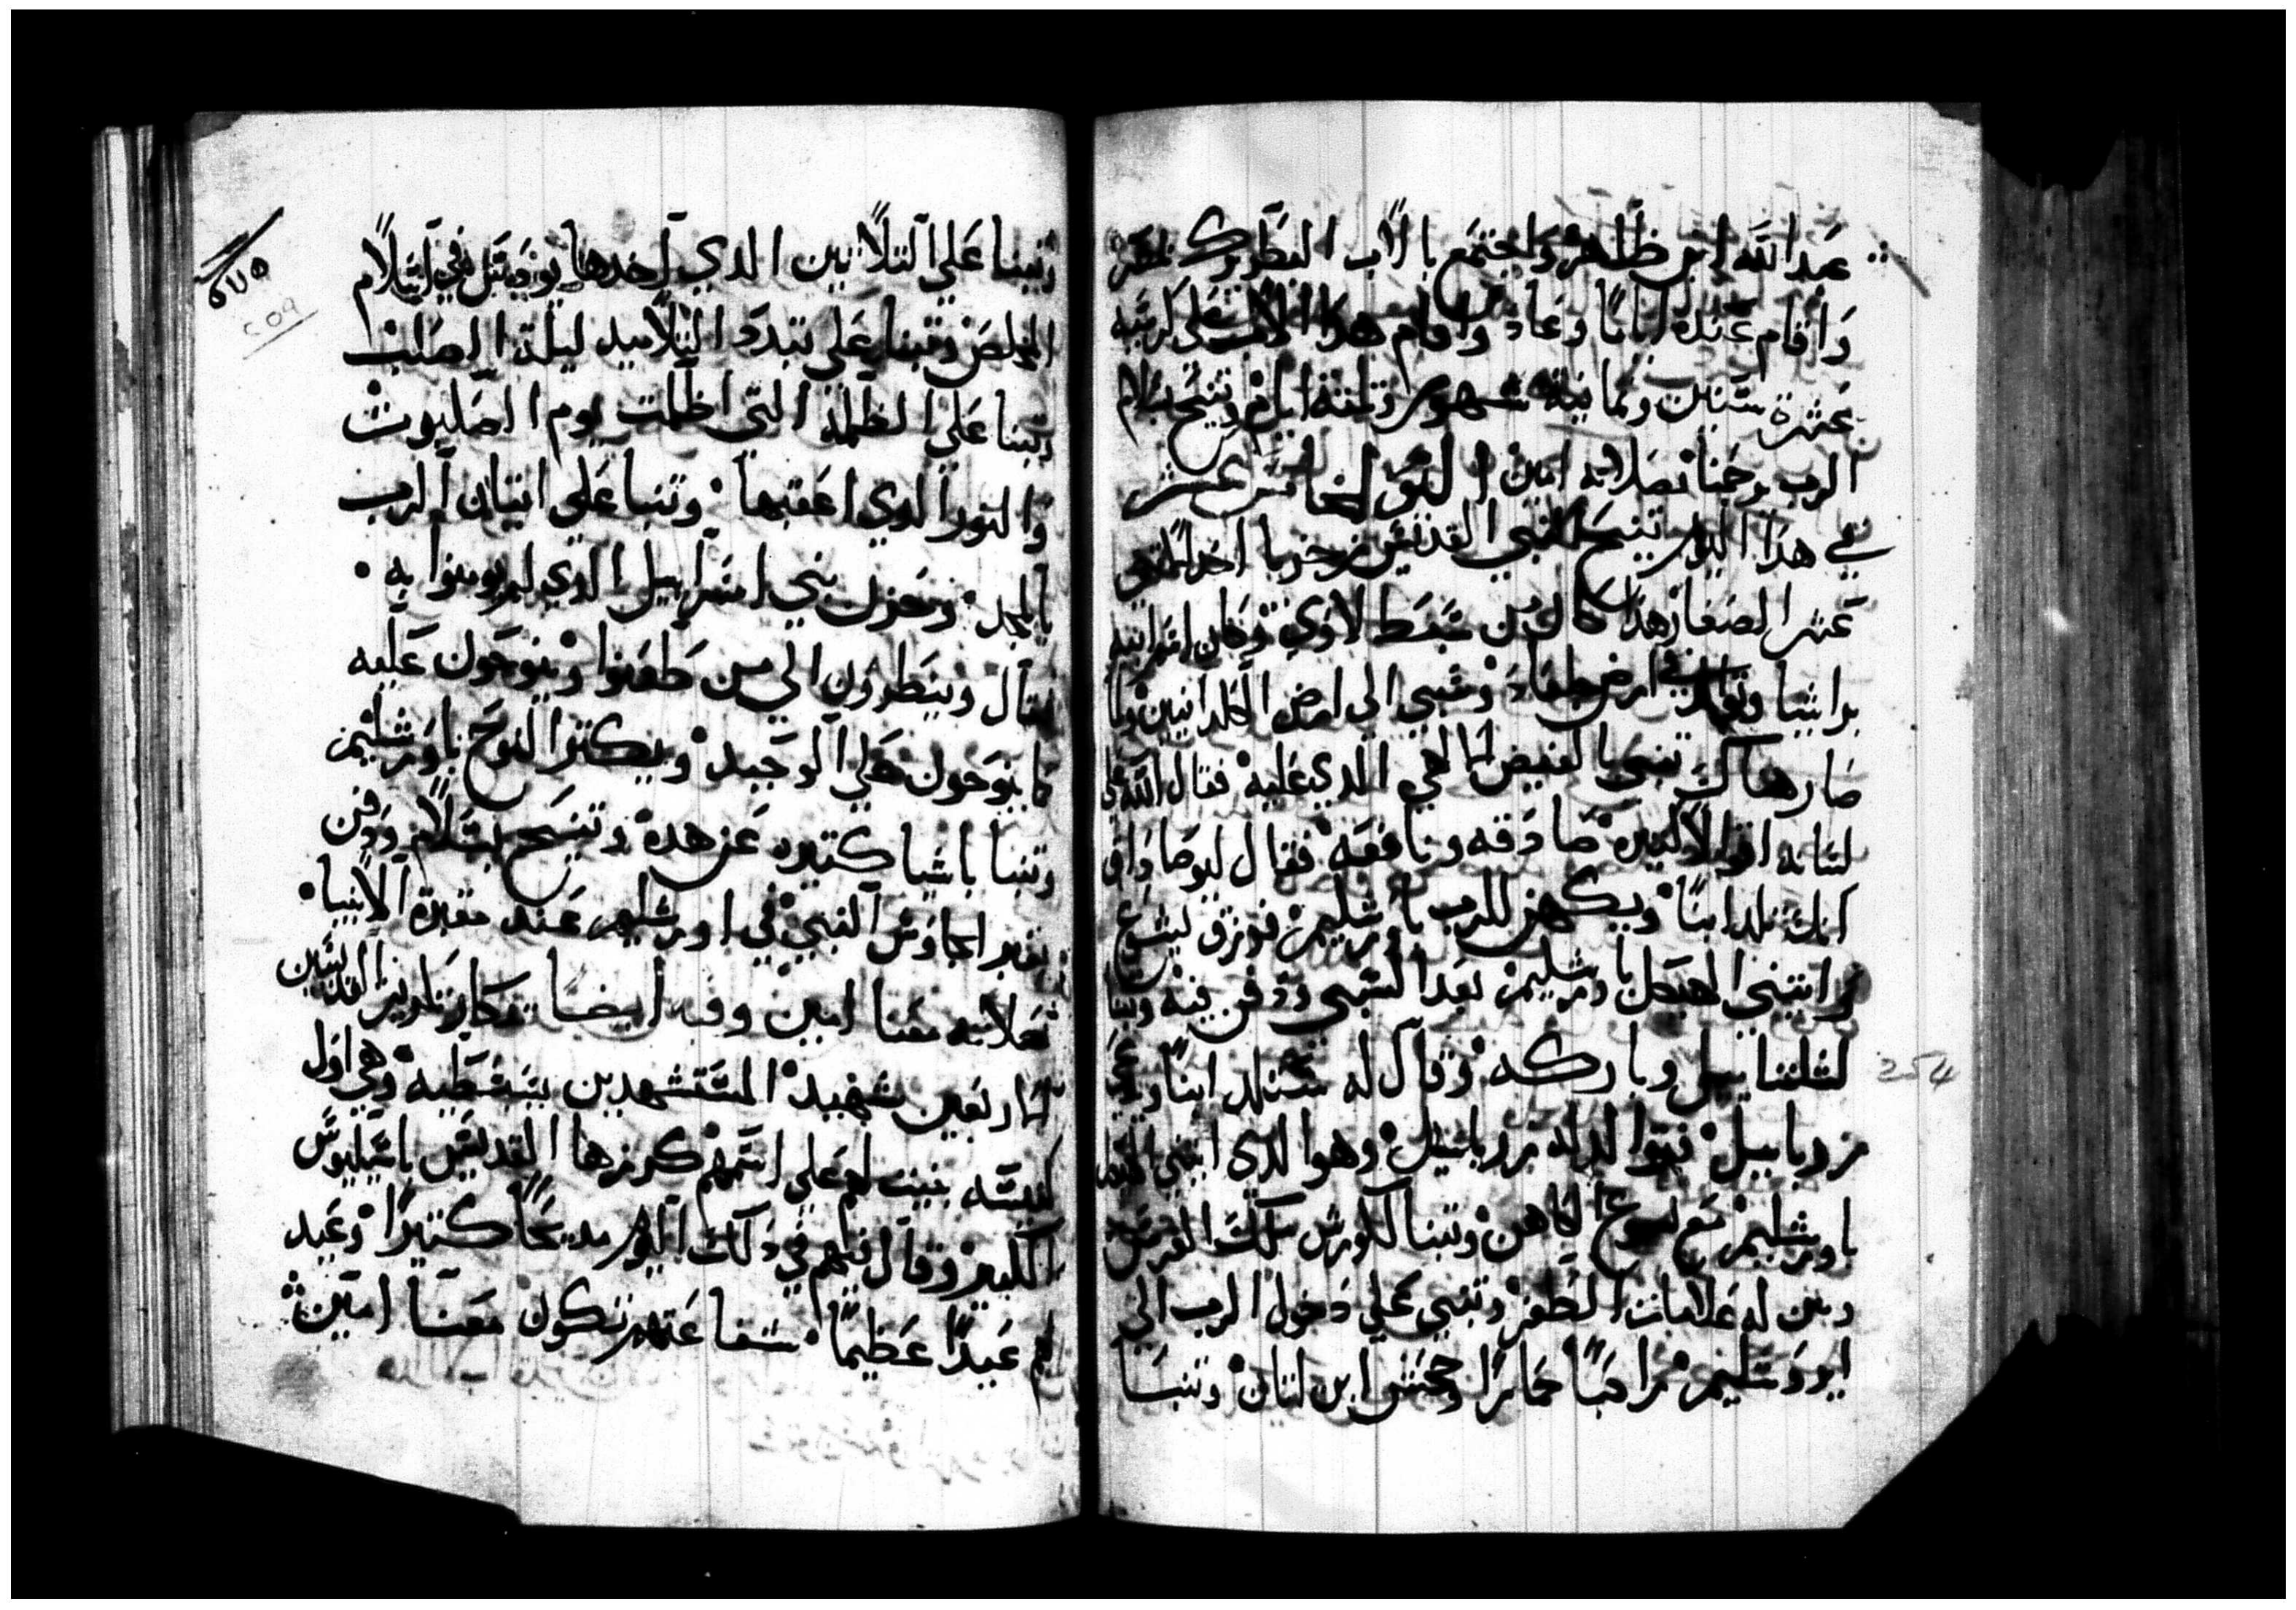 عبد الله ابن ظاهر واجتمع بالاب البطريرك بمصر
واقام عنده اياما وعاد واقام هذا الاب على كرسيه
عشرة سنين وثمانية شهور وثلثة ايام وتنيح بسلام
الرب يرحمنا بصلاته امين اليوم الخامس عشر
في هذا اليوم تنيح النبي القديس زخريا احد الاثني
عشر الصغار هذا كان من سبط لاوي وكان اسم ابيه
براشيا وتولد في ارض جلعاد وسبي الى ارض الكلدانيين ولما
صار هناك تنبى بالفيض الالهي الدي عليه فقال الله على
لسانه اقوالا كتيره صادقه ونافعه فقال ليوصاداق
انك تلد ابنا ويكهن للرب باورشليم فرزق يشوع
وابتنى الهيكل باورشليم بعد السبي ودفن فيه وتنبا
لشلتاييل وباركه وقال له ستلد ابنا ويدعى
زربابيل فتوالد له زربابيل وهوا الدي ابتنى
باورشليم مع يسوع الكاهن وتنبا لكورش ملك الفرس
وبين له علامات الظفر وتنبى على دخول الرب الى
ايروشليم راكبا حمارا وجحش ابن اتان وتنبا
٥١٥
٢٥٩
254
وتنبا على التلاتين الدي اخدها يودس في اسلام
المخلص وتنبا على تبدد التلاميد ليلة الصلب
وتنبا على الظلمة التي اظلمت يوم الصلبوت
والنور الدي اعقبها وتنبا على اتيان الرب
بالمجد وحزن بني اسراييل الدي لم يومنوا به
قال وينظرون الى من طعنوا وينوحون عليه
كما ينوحون على الوحيد ويكتر النوح باورشليم
وتنبا باشيا كتيره غير هده وتنيح بسلام ودفن
بقبر اجاوس النبي في اورشليم عند مقبرة الانبيا
صلاته معنا امين وفيه ايضا تدكار تكريز القديسين
الاربعين شهيد المستشهدين بسبسطيه وهي اول
كنيسه بنيت لهم على اسمهم كرزها القديس باسيليوس
الكبير وقال فيهم في دلك اليوم مديحا كتيرا وعيد
لهم عيدا عظيما شفاعتهم تكون معنا امين